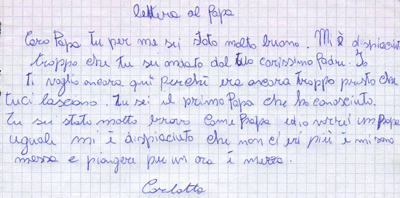 lettera al Papa
Caro Papa tu per me sei stato molto buono. Mi è dispiaciuto
troppo che tu sei andato dal tuo carissimo Padre. Io
Ti voglio ancora qui perchè era ancora troppo presto che
tuci lasciavi. Tu sei il primo Papa che ho conosciuto.
Tu sei stato molto bravo come Papa ed io vorrei un papa
uguale mi è dispiaciuto che non ci eri più e mi sono
messa e piangere per un ora è mezza.
Carlotta